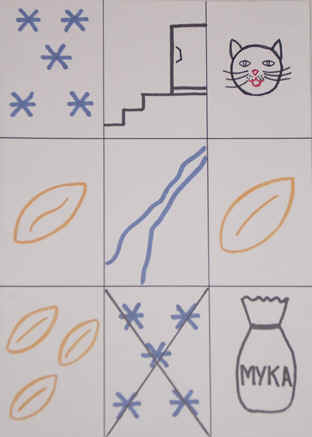 МУКА